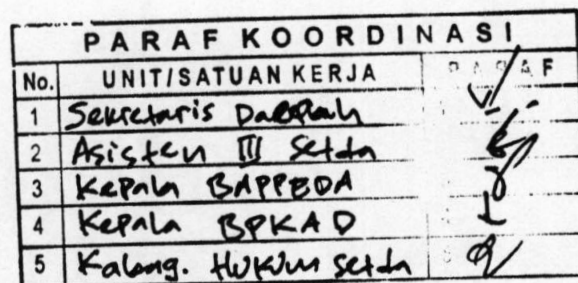 PARAF KOORDINASI
No. UNIT/SATUAN KERJA PARAF
1 Sekretaris Daerah
2 Asisten III Setda
3 Kepala BAPPEDA
4 Kepala BPKAD
5 Kabag. Hukum Setda